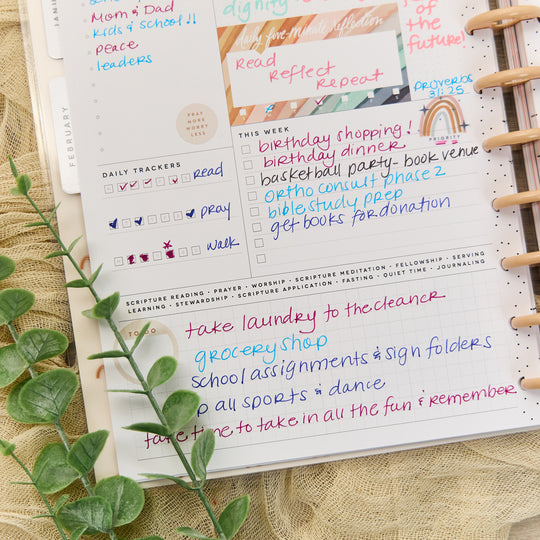 JAN
FEBRUARY
Mom & Dad
kids & school !!
peace
leaders
PRAY
MORE
WORRY
LESS
dignity
daily five-minute reflection
Read
Reflect
Repeat
of
the
future!
Proverbs
31:25
PRIORITY
DAILY TRACKERS
read
pray
walk
THIS WEEK
birthday shopping!
birthday dinner
basketball party - book venue
ortho consult phase 2
bible study prep
get books for donation
SCRIPTURE READING • PRAYER • WORSHIP • SCRIPTURE MEDITATION • FELLOWSHIP • SERVING
LEARNING • STEWARDSHIP • SCRIPTURE APPLICATION • FASTING • QUIET TIME • JOURNALING
TO DO
take laundry to the cleaner
grocery shop
school assignments & sign folders
p all sports & dance
take time to take in all the fun & remember